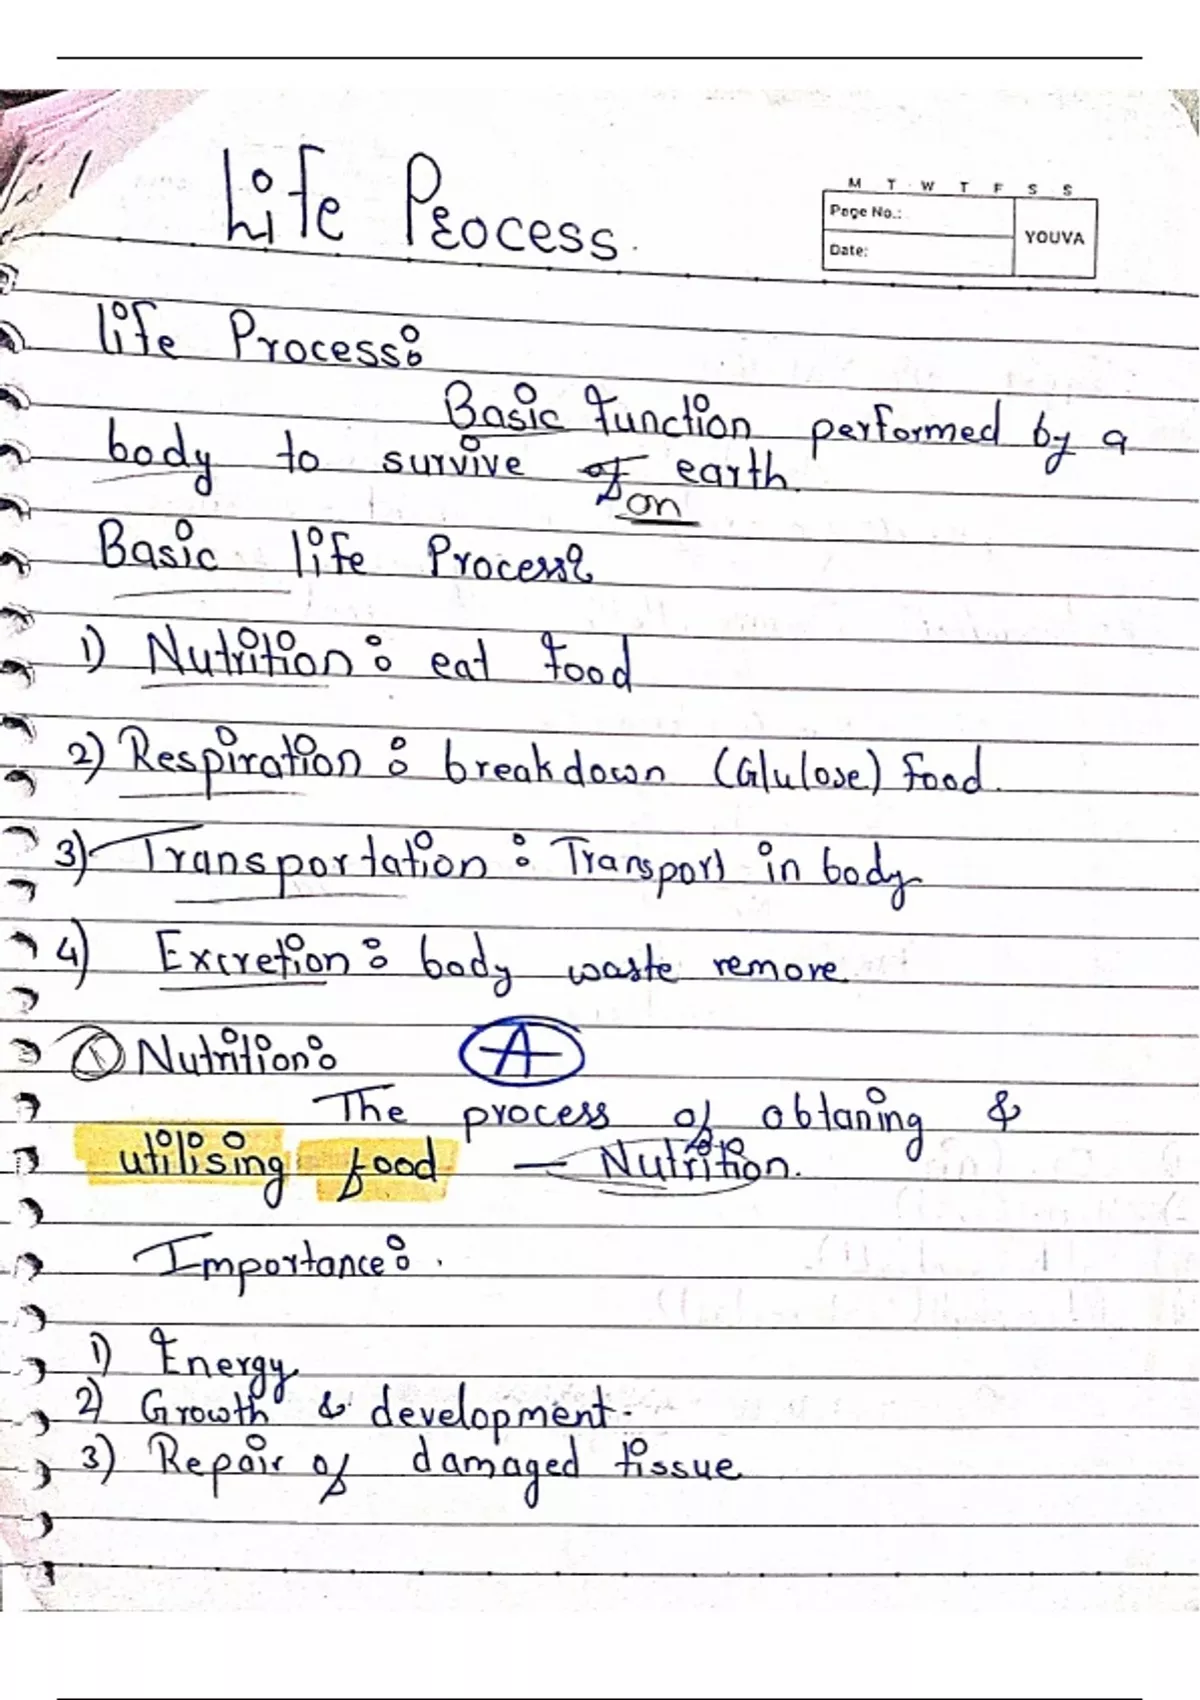 Life Process.
M T W T F S S
Page No.:
Date:
YOUVA
life Process:
Basic function performed by a
body to survive of earth.
on
Basic life Process:
1) Nutrition : eat food
2) Respiration : breakdown (Glulose) food.
3) Transportation : Transport in body
4) Excretion : body waste remove
① Nutrition: A
The process of obtaning &
utilising food — Nutrition.
Importance: .
1) Energy
2) Growth & development.
3) Repair of damaged tissue